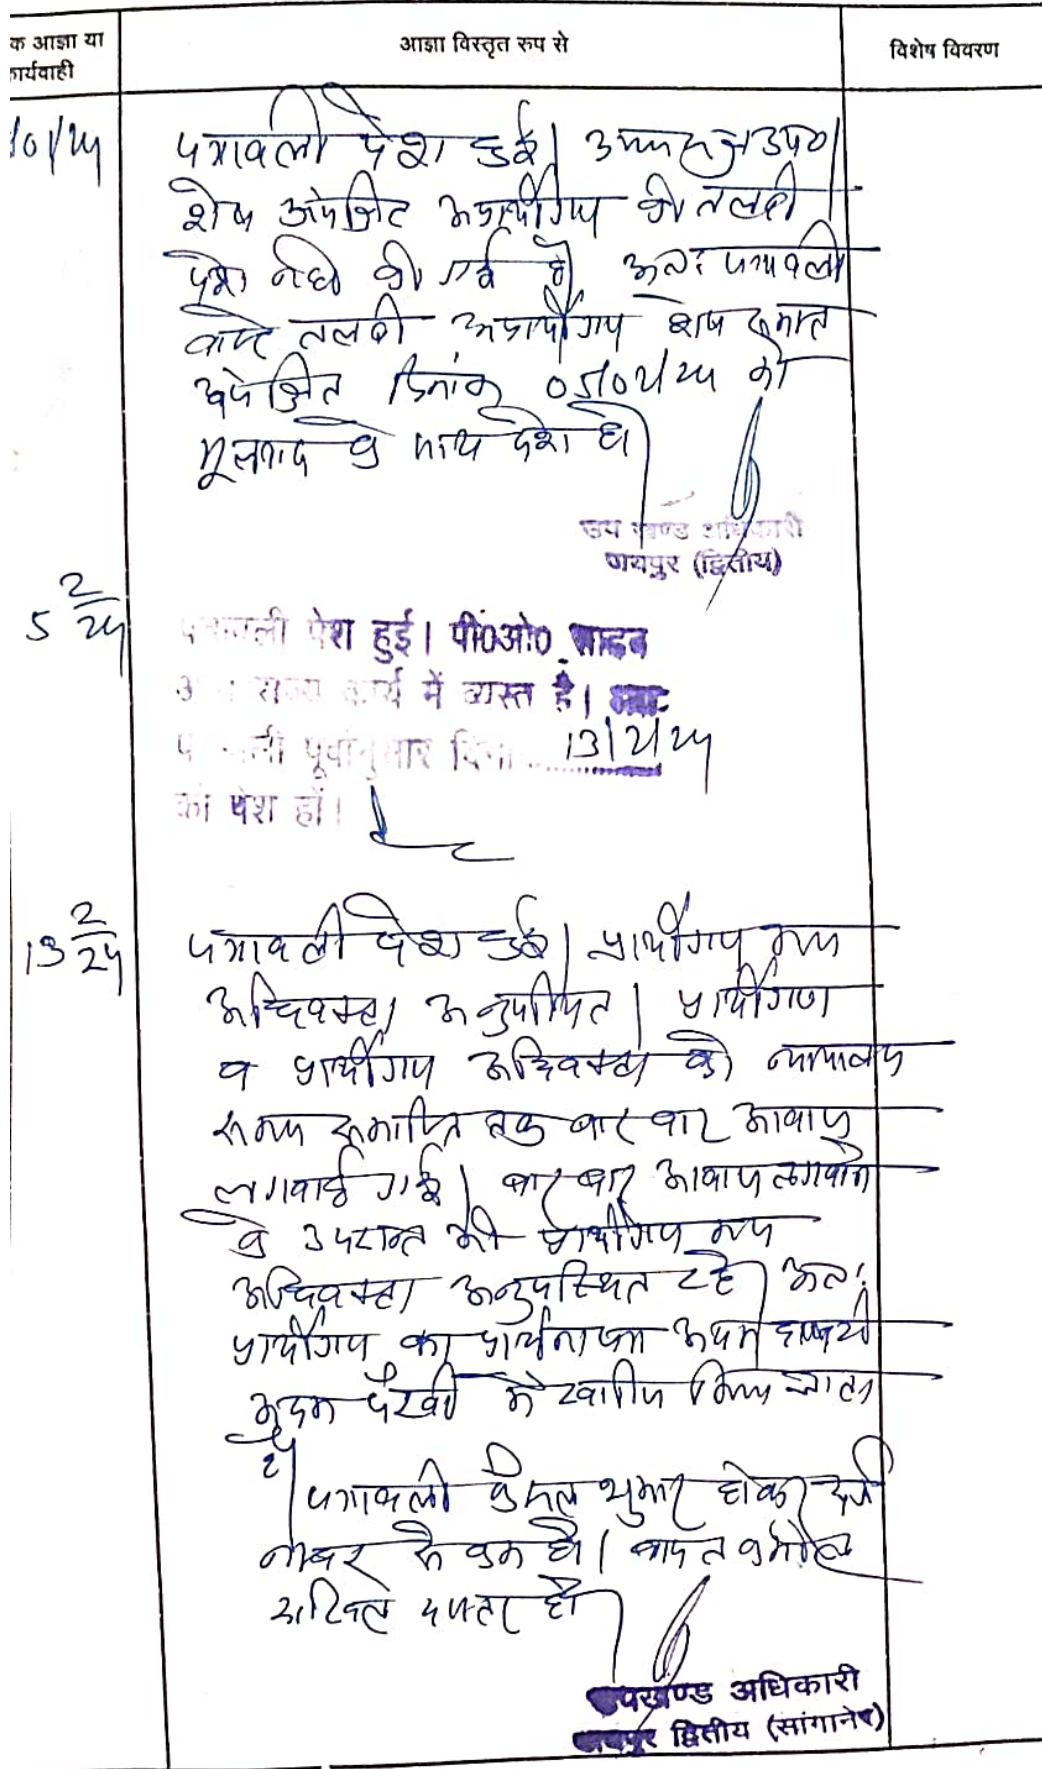 क आज्ञा या
कार्यवाही
आज्ञा विस्तृत रुप से
विशेष विवरण
/01/24
पत्रावली पेश हुई।
शेष अपेक्षित अप्रार्थीगण की तलबी
पेश नही की गई है अतः पत्रावली
वास्ते तलबी अप्रार्थीगण शेष
अपेक्षित दिनांक 05/02/24 को
मूलवाद के साथ पेश हो।
उप खण्ड अधिकारी
जयपुर (द्वितीय)
5 2/24
पत्रावली पेश हुई। पी0ओ0 साहब
अन्य राज्य कार्य में व्यस्त है। अतः
पत्रावली पूर्वानुसार दिनांक 13/2/24
को पेश हों।
13 2/24
पत्रावली पेश हुई। प्रार्थीगण मय
अधिवक्ता अनुपस्थित। प्रार्थीगण
व प्रार्थीगण अधिवक्ता को न्यायालय
समय समाप्ति तक बार बार आवाज
लगवाई गई। बार बार आवाज लगवाने
के उपरान्त भी प्रार्थीगण मय
अधिवक्ता अनुपस्थित रहे। अतः
प्रार्थीगण का प्रार्थना पत्र अदम हाजरी
अदम पैरवी मे खारीज किया जाता
है।
पत्रावली फैसल शुमार होकर दर्ज
नम्बर से कम हो। बाद तकमील
दाखिल दफ्तर हो।
उपखण्ड अधिकारी
जयपुर द्वितीय (सांगानेर)